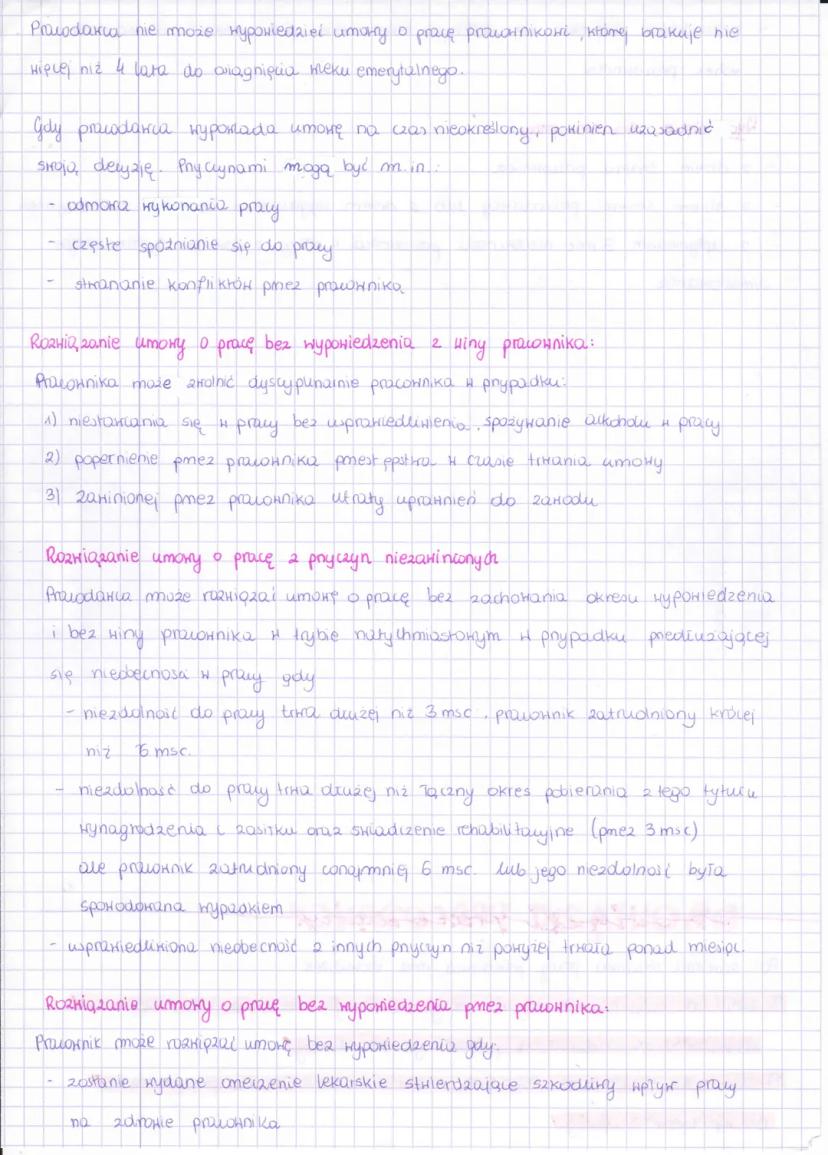 Pracodawca nie może wypowiedzieć umowy o pracę pracownikowi, której brakuje nie
więcej niż 4 lata do osiągnięcia wieku emerytalnego.
Gdy pracodawca wypowiada umowę na czas nieokreślony, powinien uzasadnić
swoją decyzję. Przyczynami mogą być m.in.:
- odmowa wykonania pracy
- częste spóźnianie się do pracy
- stwarzanie konfliktów przez pracownika
Rozwiązanie umowy o pracę bez wypowiedzenia z winy pracownika:
Pracownika może zwolnić dyscyplinarnie pracownika w przypadku:
1) niestawiania się w pracy bez usprawiedliwienia, spożywanie alkoholu w pracy
2) popełnienie przez pracownika przestępstwa w czasie trwania umowy
3) zawinionej przez pracownika utraty uprawnień do zawodu
Rozwiązanie umowy o pracę z przyczyn niezawinionych
Pracodawca może rozwiązać umowę o pracę bez zachowania okresu wypowiedzenia
i bez winy pracownika w trybie natychmiastowym w przypadku przedłużającej
się nieobecności w pracy gdy
- niezdolność do pracy trwa dłużej niż 3 msc, pracownik zatrudniony krócej
niż 6 msc.
- niezdolność do pracy trwa dłużej niż łączny okres pobierania z tego tytułu
wynagrodzenia i zasiłku oraz świadczenie rehabilitacyjne (przez 3 msc)
ale pracownik zatrudniony conajmniej 6 msc. lub jego niezdolność była
spowodowana wypadkiem
- usprawiedliwiona nieobecność z innych przyczyn niż powyżej trwała ponad miesiąc.
Rozwiązanie umowy o pracę bez wypowiedzenia przez pracownika:
Pracownik może rozwiązać umowę bez wypowiedzenia gdy:
- zostanie wydane orzeczenie lekarskie stwierdzające szkodliwy wpływ pracy
na zdrowie pracownika